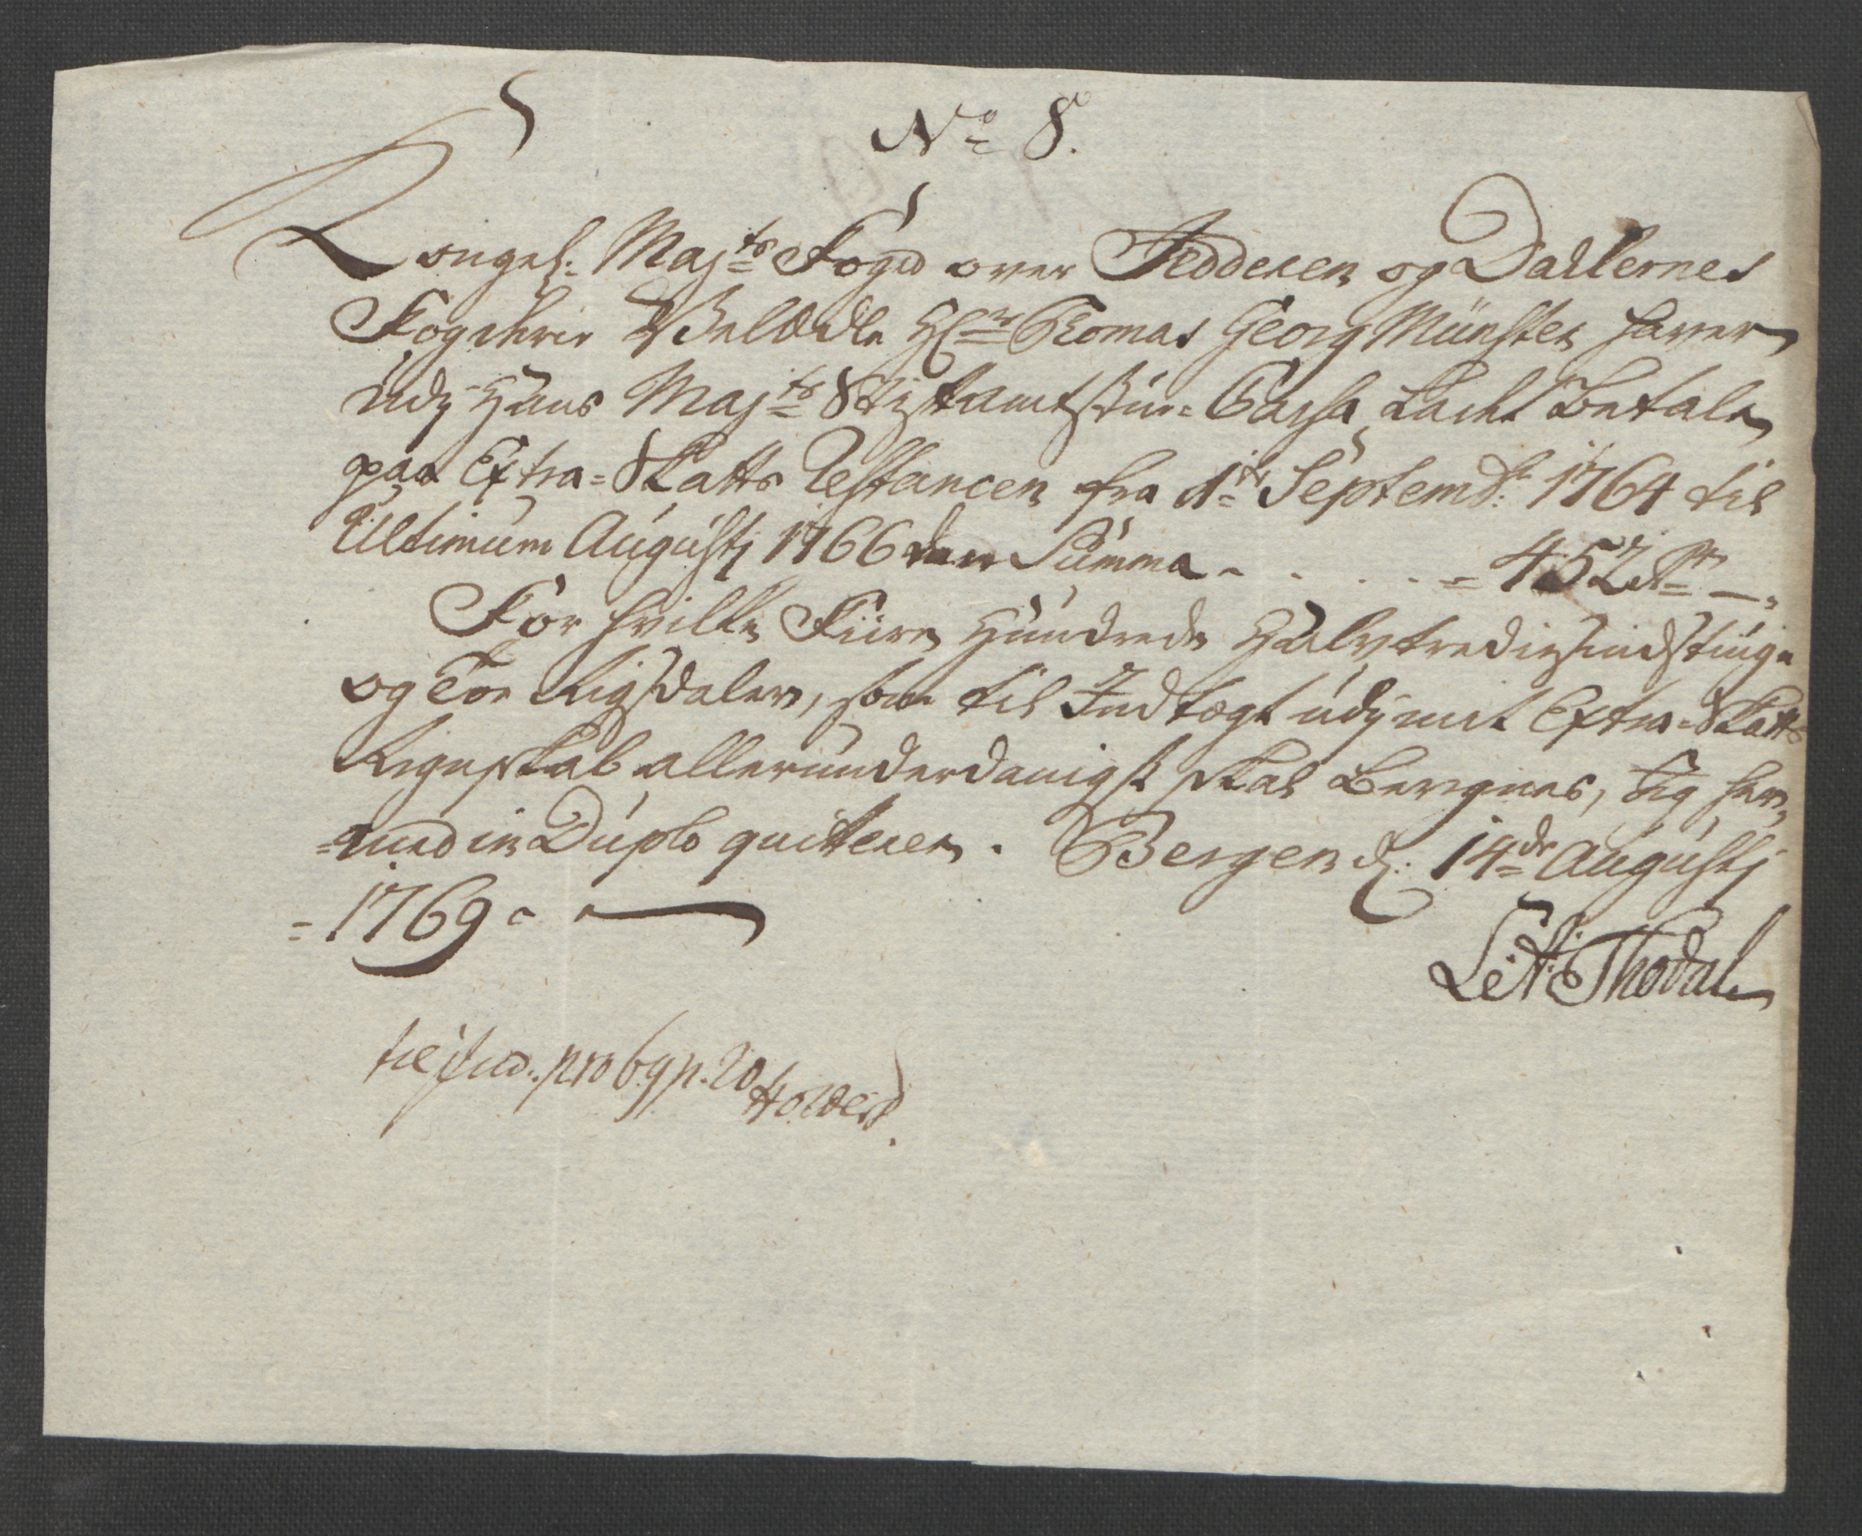 No 8.
Kongel: Majts Fogd over Jedderen og Dallernes
Fogderie Velædle Hr Thomas Georg Münster haver
udj Hans Majts Stiftamtstue-Cassa ladet betale
paa Extra-Skatts Restancen fra 1te Septembr 1764 til
Ultimum Augustj 1766 den Summa - . . . = 452 Rdr —,
For hvilke Fiire Hundrede Halvtrediesindstiuge
og Toe Rigsdaler, som til Indtægt udj mit Extra-Skatts
Regnskab allerunderdanigst skal beregnes, jeg her-
=med in Duplo quitterer. Bergen d: 14de Augustj
=1769 - -
L: A: Thodal
til Ind. pro 69 p. 20